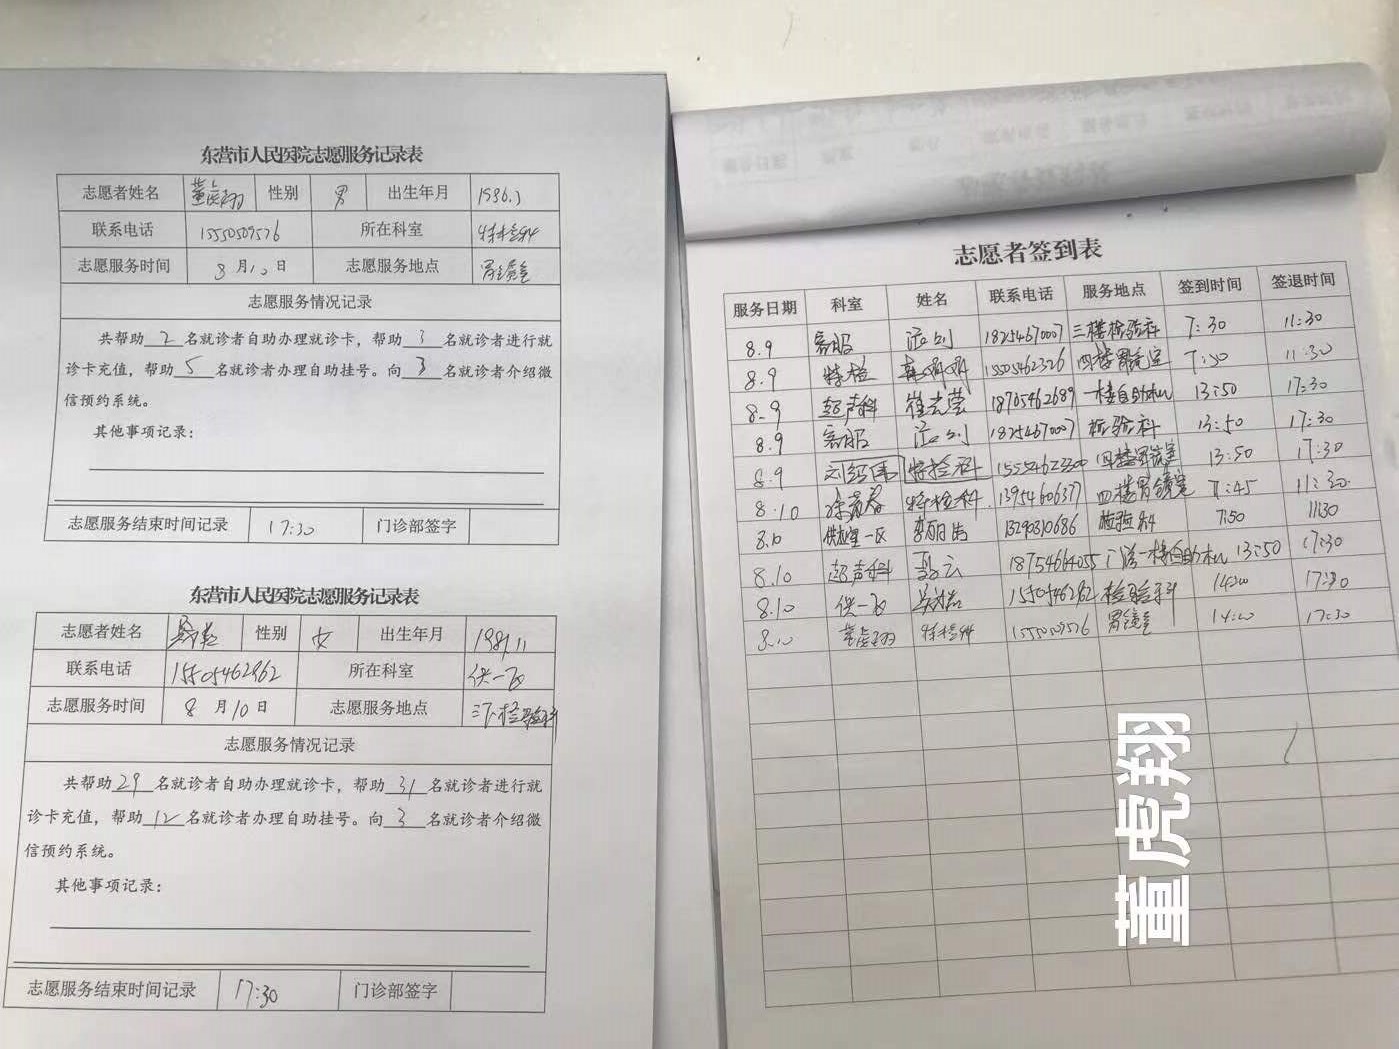 东营市人民医院志愿服务记录表
志愿者姓名 董虎翔 性别 男 出生年月
联系电话 所在科室 特检科
志愿服务时间 8月10日 志愿服务地点 胃镜室
志愿服务情况记录
共帮助 2 名就诊者自助办理就诊卡，帮助 3 名就诊者进行就
诊卡充值，帮助 5 名就诊者办理自助挂号。向 3 名就诊者介绍微
信预约系统。
其他事项记录：
志愿服务结束时间记录 17:30 门诊部签字
东营市人民医院志愿服务记录表
志愿者姓名 性别 女 出生年月 1981.11
联系电话 15505462862 所在科室 供一区
志愿服务时间 8月10日 志愿服务地点 检验科
志愿服务情况记录
共帮助 29 名就诊者自助办理就诊卡，帮助 31 名就诊者进行就
诊卡充值，帮助 12 名就诊者办理自助挂号。向 3 名就诊者介绍微
信预约系统。
其他事项记录：
志愿服务结束时间记录 17:30 门诊部签字
志愿者签到表
服务日期 科室 姓名 联系电话 服务地点 签到时间 签退时间
8.9 客服 18254670007 三楼检验科 7:30 11:30
8.9 特检 15505462326 四楼胃镜室 7:30 11:30
8.9 超声科 崔志莹 18765462689 一楼自助机 13:50 17:30
8.9 客服 18254670007 检验科 13:50 17:30
8.9 特检科 15552462300 四楼胃镜室 13:50 17:30
8.10 特检科 13954606377 四楼胃镜室 7:45 11:30
8.10 13290310686 检验科 7:50 11:30
8.10 超声科 18754664055 门诊一楼自助机 13:50 17:30
8.10 供一区 15505462862 检验科 14:00 17:30
8.10 董虎翔 特检科 胃镜室 14:00 17:30
董虎翔